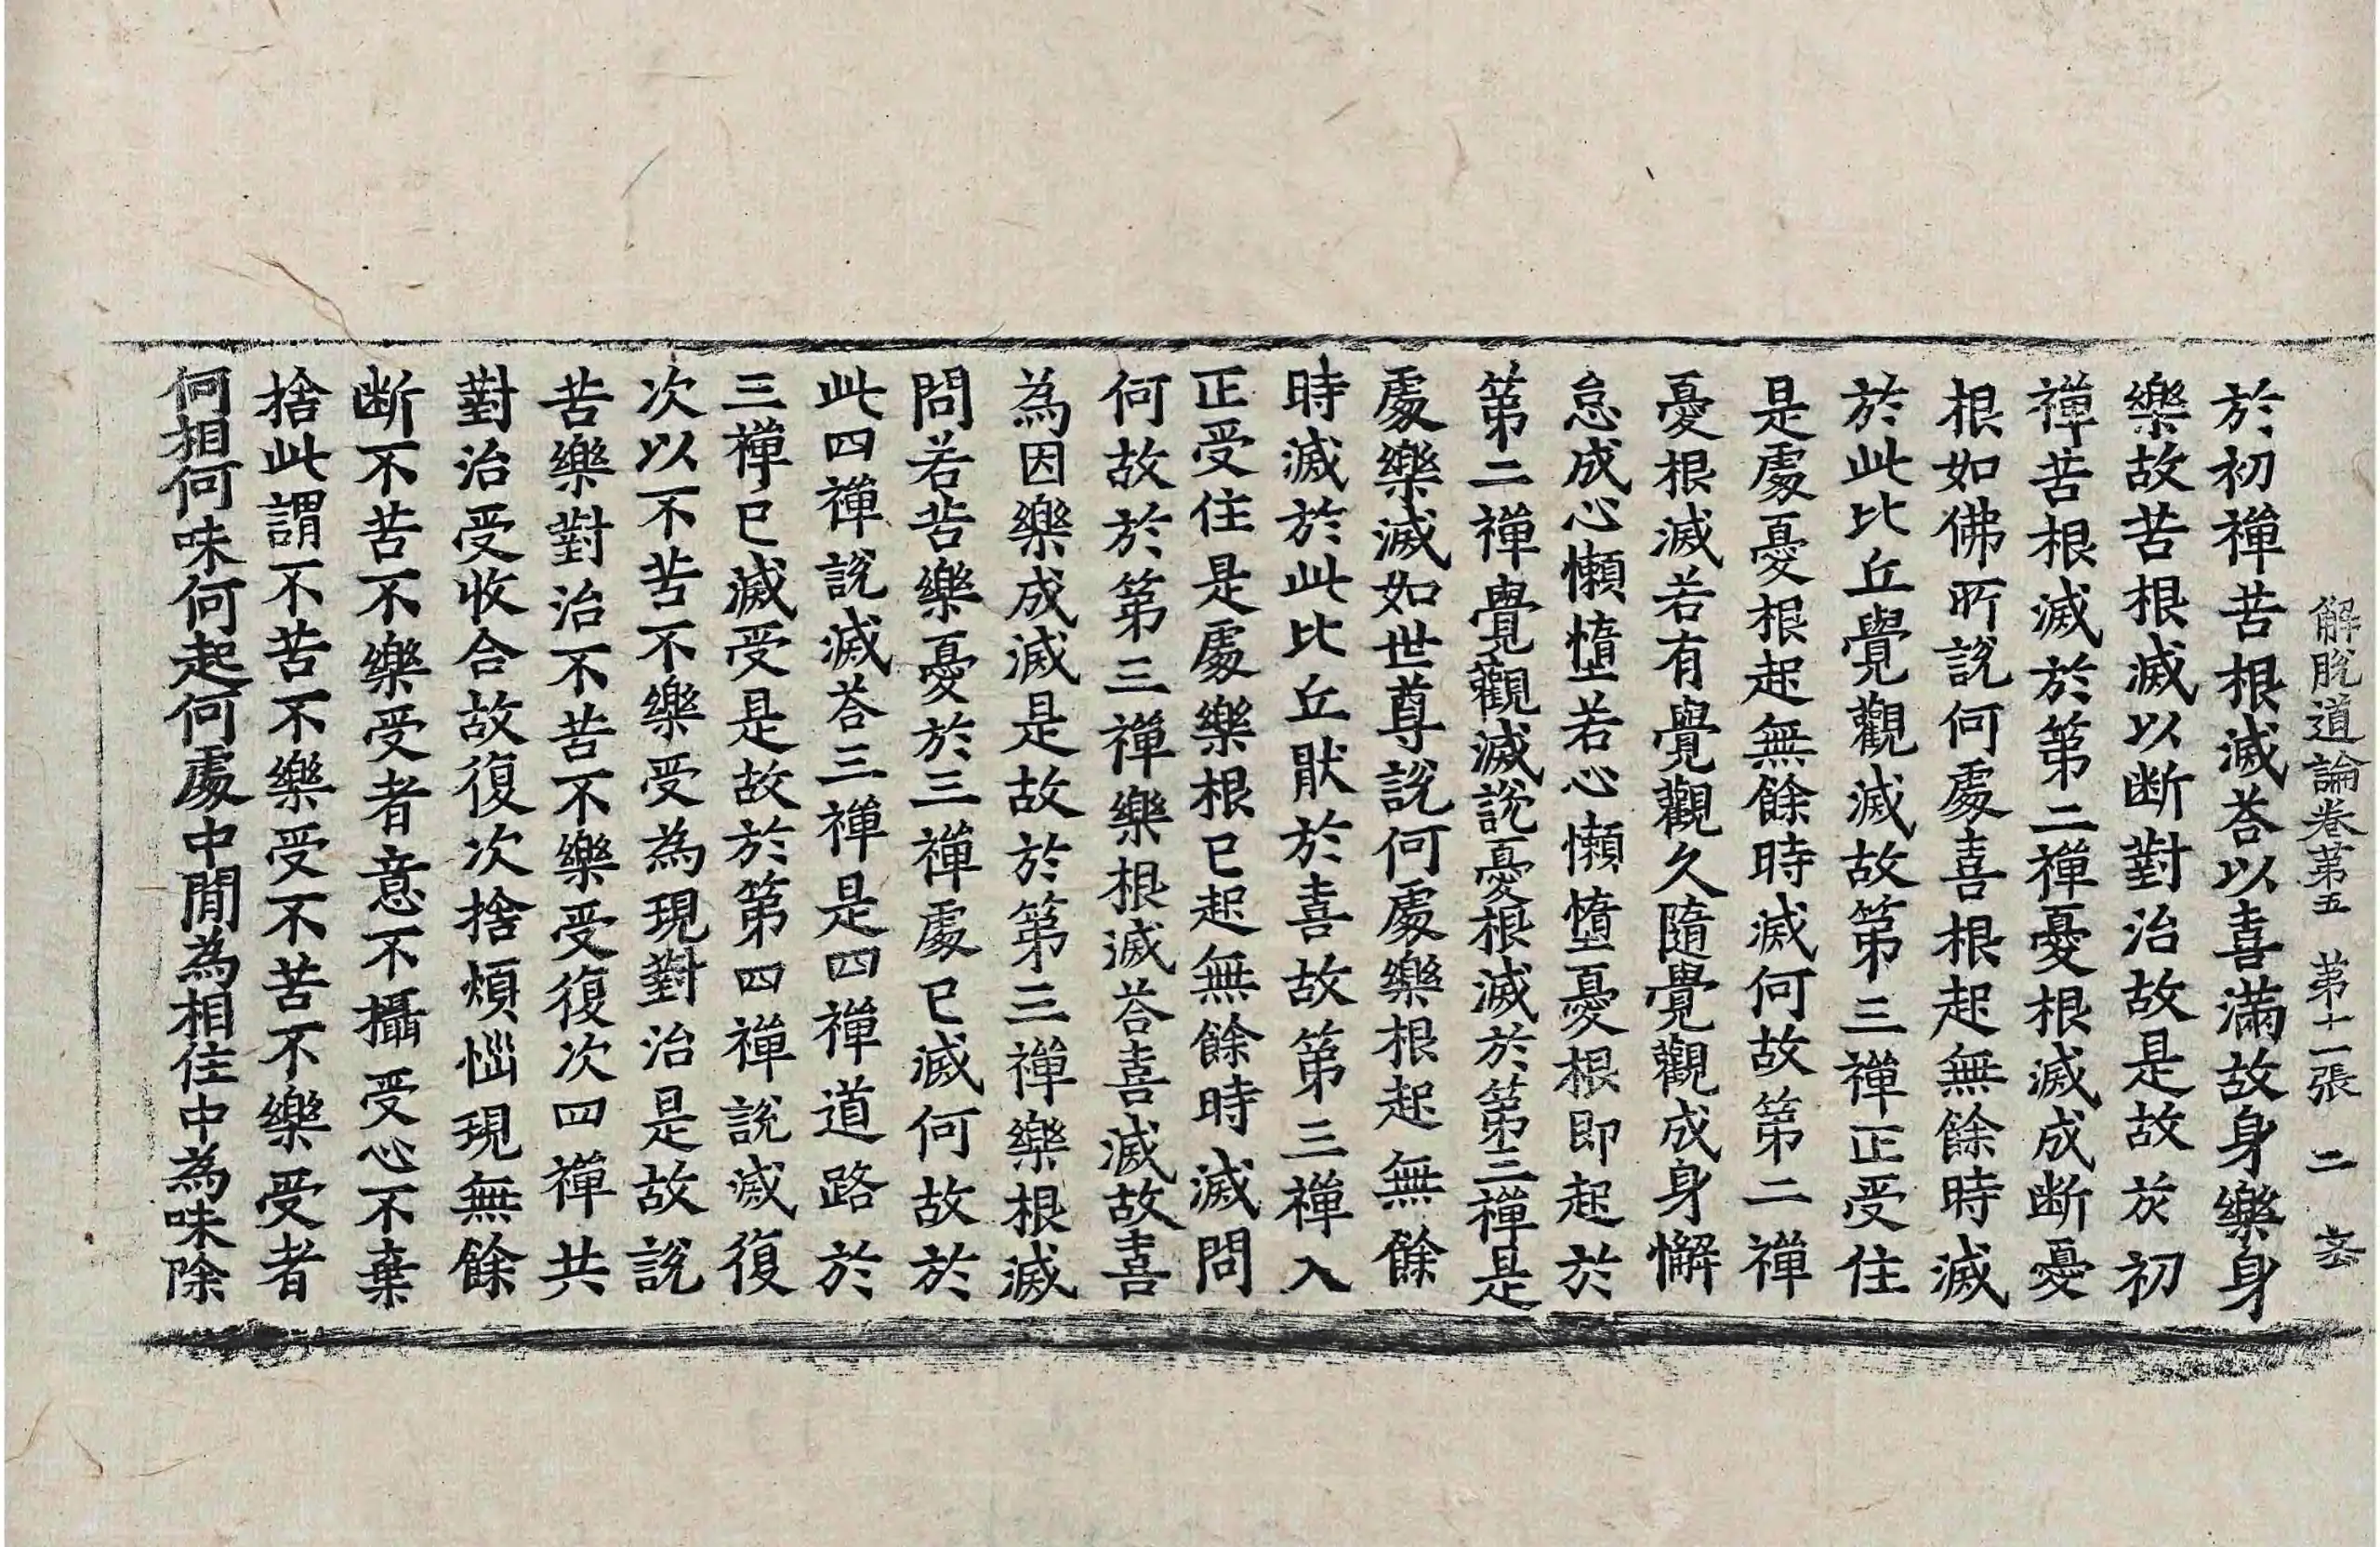 解脫道論卷第五　第十一張　二　㳟
於初禪苦根滅荅以喜滿故身樂身
樂故苦根滅以断對治故是故於初
禪苦根滅於第二禪憂根滅成断憂
根如佛所說何處喜根起無餘時滅
於此比丘覺觀滅故第三禪正受住
是處憂根起無餘時滅何故第二禪
憂根滅若有覺觀久隨覺觀成身懈
怠成心懶墮若心懶墮憂根即起於
第二禪覺觀滅說憂根滅於第三禪是
處樂滅如世尊說何處樂根起無餘
時滅於此比丘猒於喜故第三禪入
正受住是處樂根已起無餘時滅問
何故於第三禪樂根滅荅喜滅故喜
為因樂成滅是故於第三禪樂根滅
問若苦樂憂於三禪處已滅何故於
此四禪說滅荅三禪是四禪道路於
三禪已滅受是故於第四禪說滅復
次以不苦不樂受為現對治是故說
苦樂對治不苦不樂受復次四禪共
對治受收合故復次捨煩惱現無餘
断不苦不樂受者意不攝受心不棄
捨此謂不苦不樂受不苦不樂受者
何相何味何起何處中間為相住中為味除